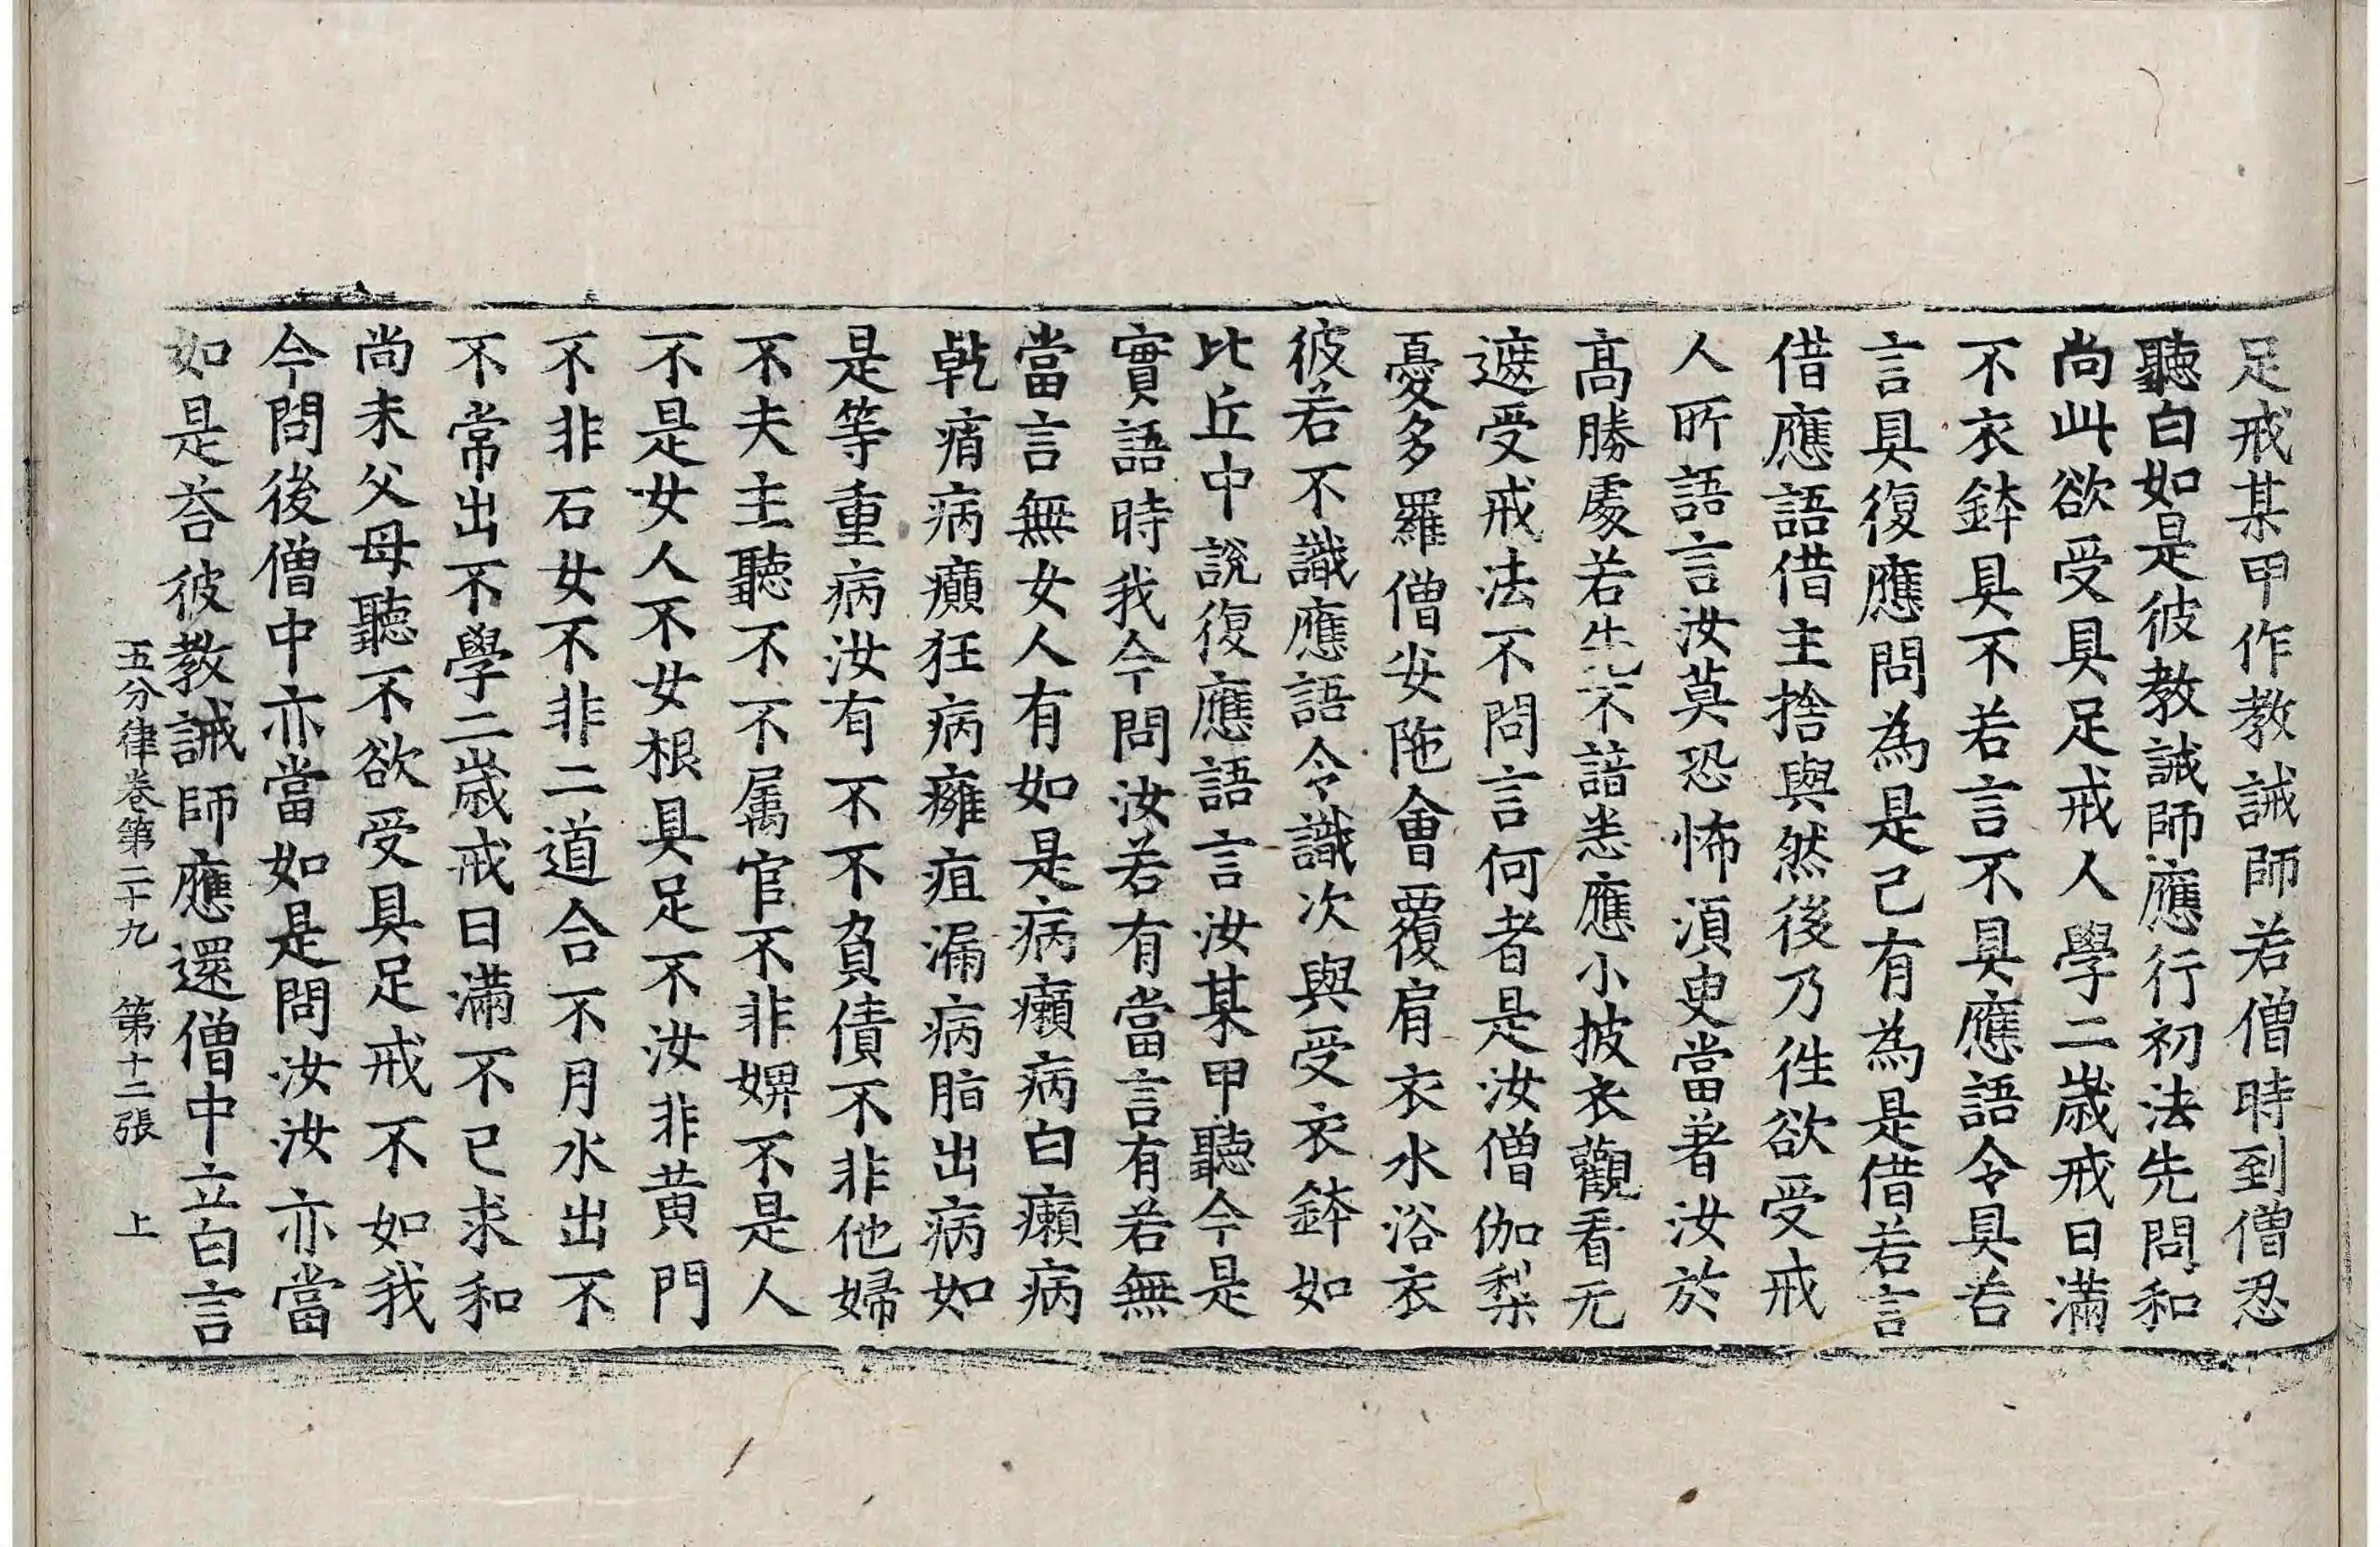 足戒某甲作教誡師若僧時到僧忍
聽白如是彼教誡師應行初法先問和
尚此欲受具足戒人學二歲戒日滿
不衣鉢具不若言不具應語令具若
言具復應問為是己有為是借若言
借應語借主捨與然後乃往欲受戒
人所語言汝莫恐怖須臾當著汝於
高勝處若先不諳悉應小披衣觀看无
遮受戒法不問言何者是汝僧伽梨
憂多羅僧安陁會覆肩衣水浴衣
彼若不識應語令識次與受衣鉢如
比丘中說復應語言汝某甲聽今是
實語時我今問汝若有當言有若無
當言無女人有如是病癩病白癩病
乹痟病癲狂病癰疽漏病脂出病如
是等重病汝有不不負債不非他婦
不夫主聽不不属官不非婢不是人
不是女人不女根具足不汝非黄門
不非石女不非二道合不月水出不
不常出不學二歲戒日滿不已求和
尚未父母聽不欲受具足戒不如我
今問後僧中亦當如是問汝汝亦當
如是荅彼教誡師應還僧中立白言
五分律卷第二十九 第十二張 上